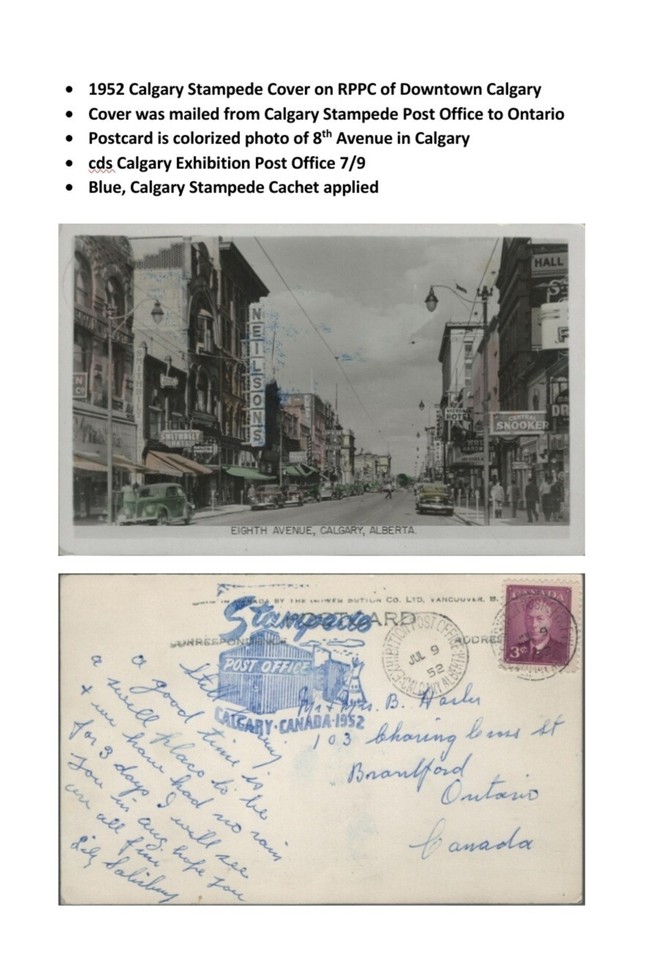 • 1952 Calgary Stampede Cover on RPPC of Downtown Calgary
• Cover was mailed from Calgary Stampede Post Office to Ontario
• Postcard is colorized photo of 8th Avenue in Calgary
• cds Calgary Exhibition Post Office 7/9
• Blue, Calgary Stampede Cachet applied
HALL
NEILSONS
CENTRAL
SNOOKER
DR
EIGHTH AVENUE, CALGARY, ALBERTA.
CO. LTD., VANCOUVER, B.
Stampede
CARD
CORRESPONDENCE
ADDRES
EXHIBITION POST OFFICE
JUL 9
52
CALGARY ALBERTA
CANADA
3c
POST OFFICE
CALGARY·CANADA·1952
Still having
a good time is
a swell place to be
+ we have had no rain
for 3 days I will see
you in aug. hope you
are all fine
Lily Salisbury
Mr + Mrs. B.
103 Charing Cross st
Brantford
Ontario
Canada